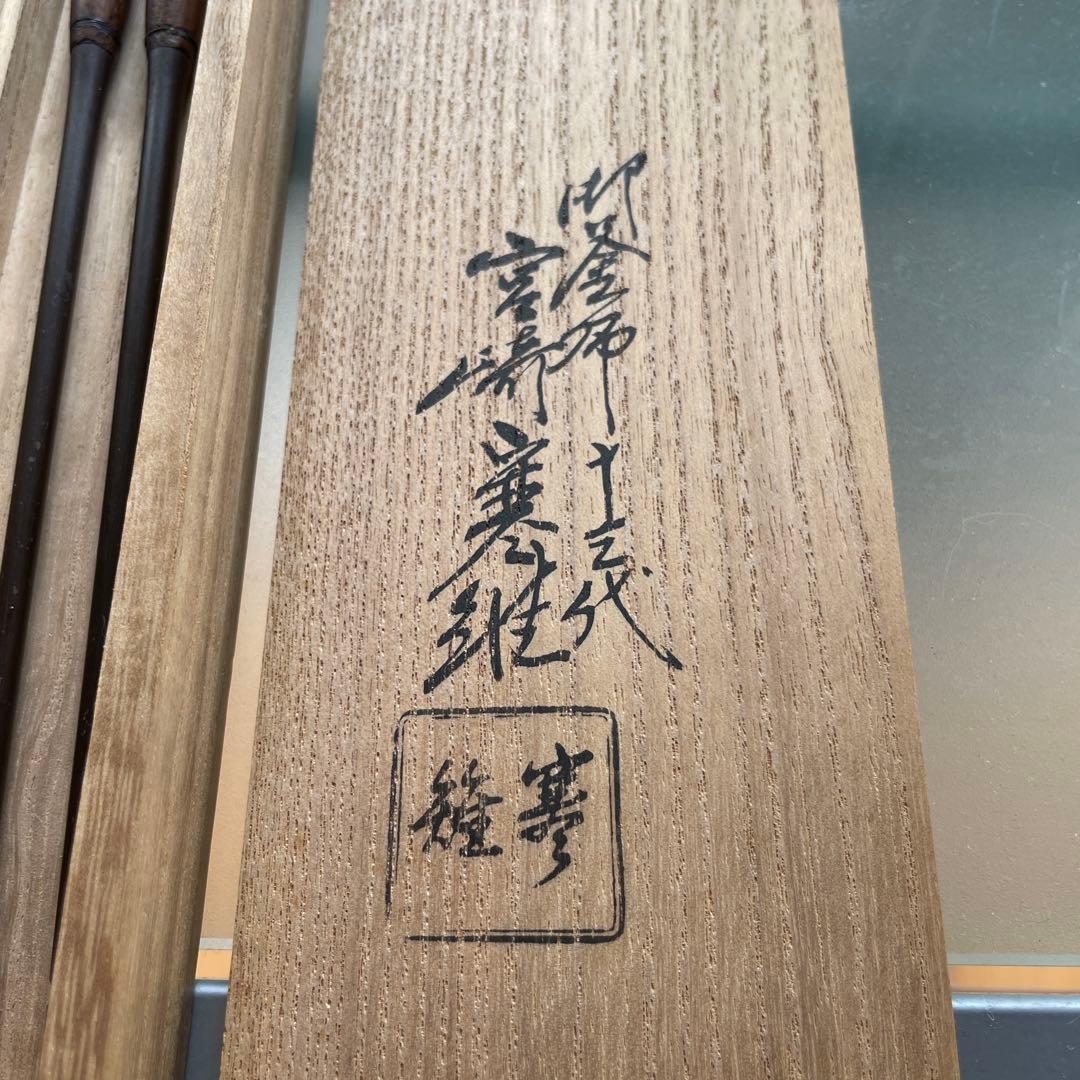 御釜師十三代
宮﨑寒雉
寒
雉